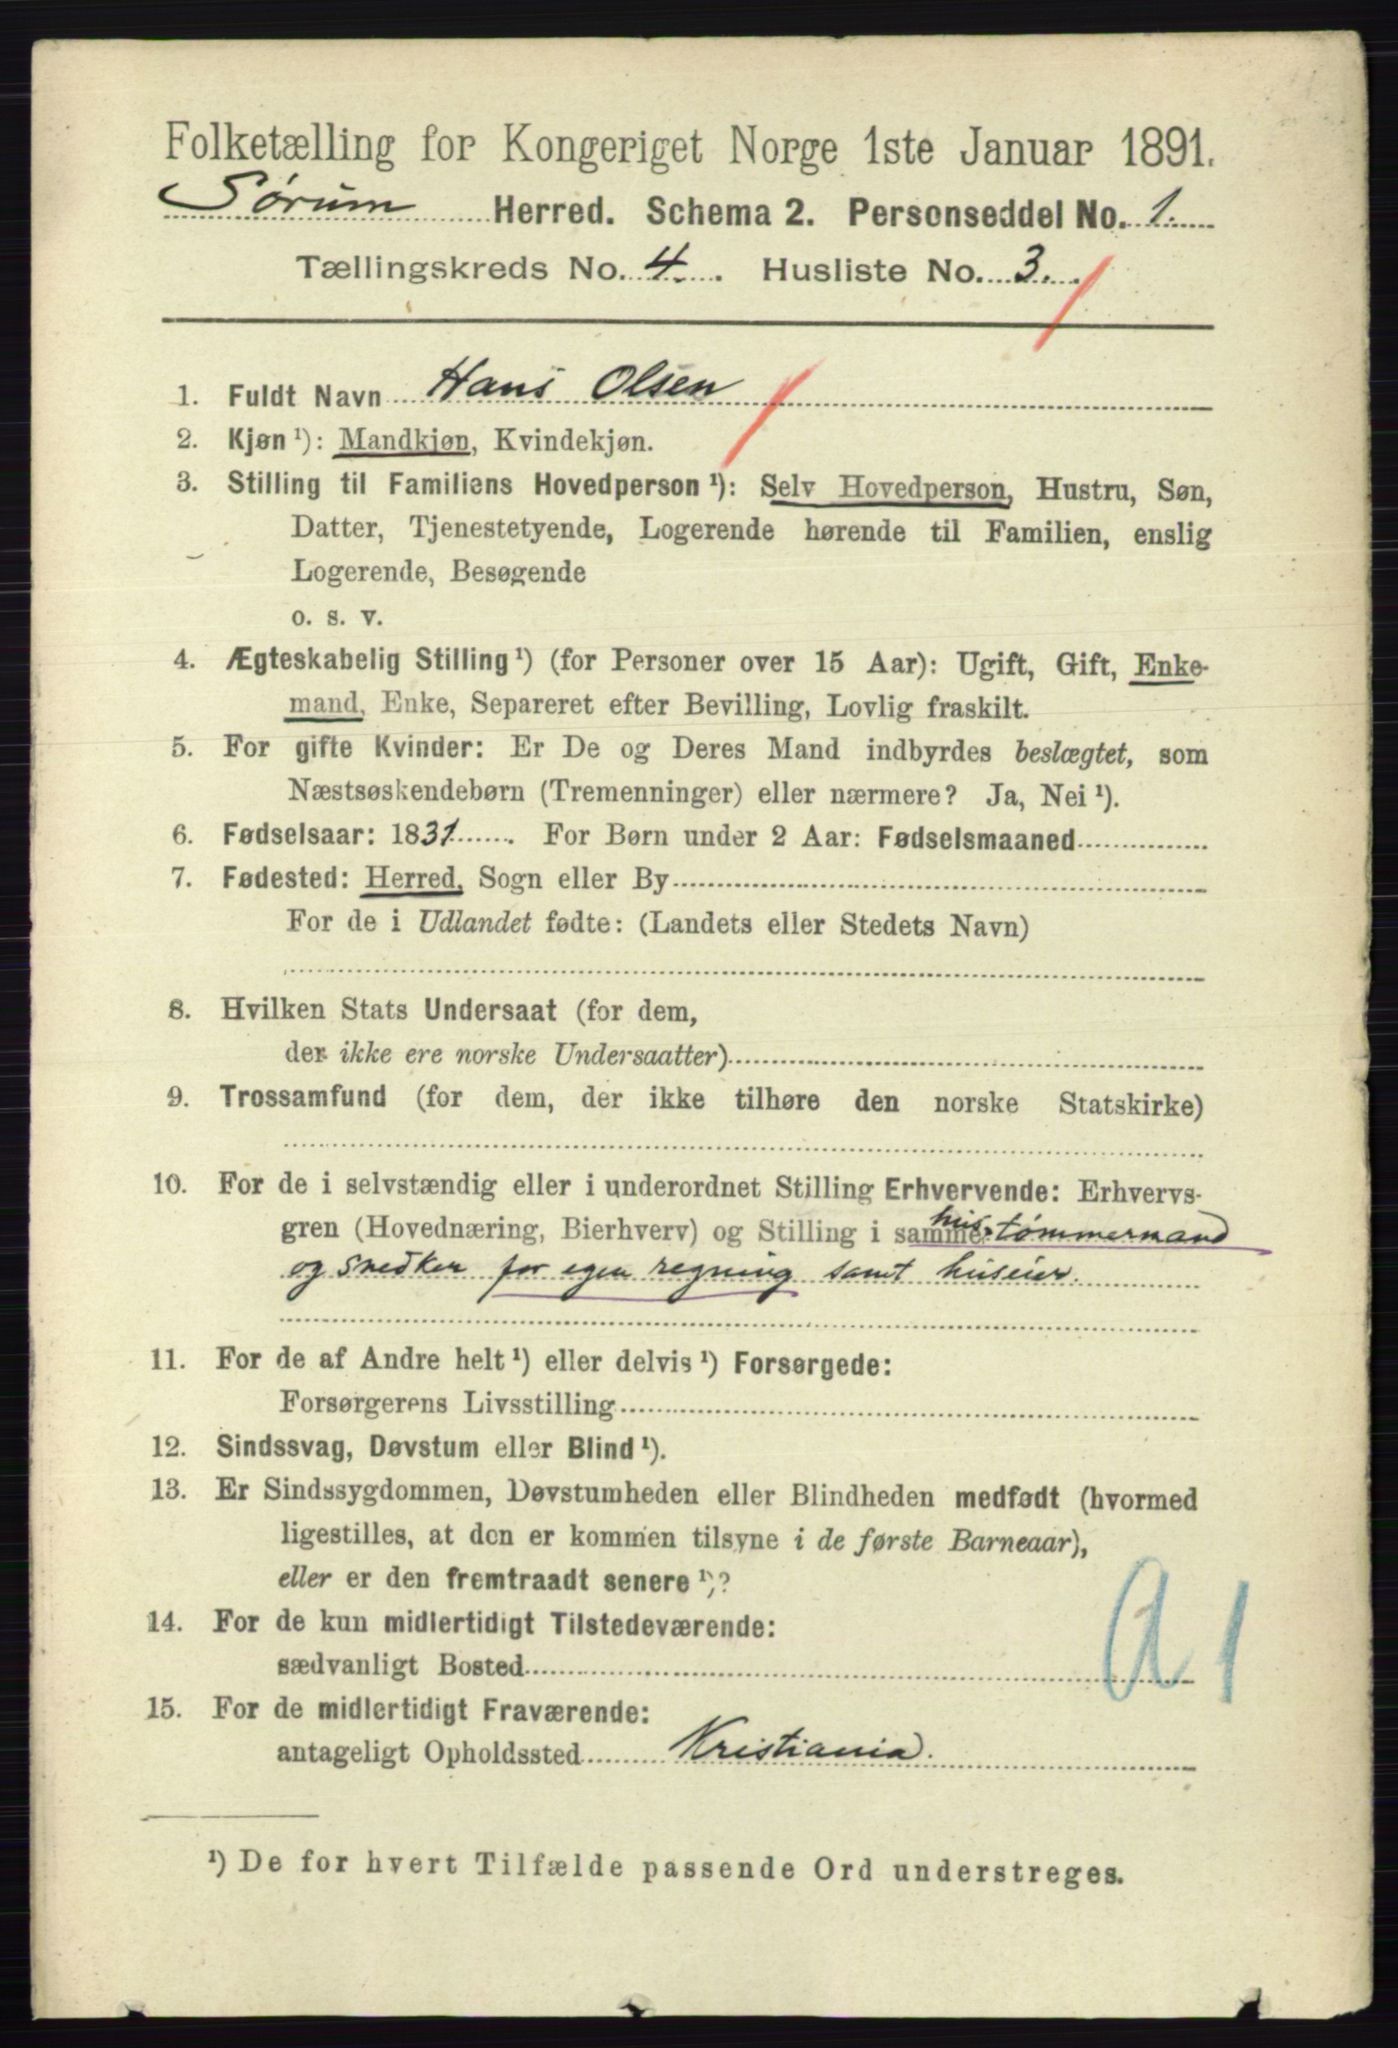 Folketælling for Kongeriget Norge 1ste Januar 1891.
Sørum Herred. Schema 2. Personseddel No. 1.
Tællingskreds No. 4. Husliste No. 3.
1. Fuldt Navn Hans Olsen
2. Kjøn ¹): Mandkjøn, Kvindekjøn.
3. Stilling til Familiens Hovedperson ¹): Selv Hovedperson, Hustru, Søn,
Datter, Tjenestetyende, Logerende hørende til Familien, enslig
Logerende, Besøgende
o. s. v.
4. Ægteskabelig Stilling ¹) (for Personer over 15 Aar): Ugift, Gift, Enke-
mand, Enke, Separeret efter Bevilling, Lovlig fraskilt.
5. For gifte Kvinder: Er De og Deres Mand indbyrdes beslægtet, som
Næstsøskendebørn (Tremenninger) eller nærmere? Ja, Nei ¹).
6. Fødselsaar: 1831. For Børn under 2 Aar: Fødselsmaaned
7. Fødested: Herred, Sogn eller By
For de i Udlandet fødte: (Landets eller Stedets Navn)
8. Hvilken Stats Undersaat (for dem,
der ikke ere norske Undersaatter)
9. Trossamfund (for dem, der ikke tilhøre den norske Statskirke)
10. For de i selvstændig eller i underordnet Stilling Erhvervende: Erhvervs-
gren (Hovednæring, Bierhverv) og Stilling i samme. hustømmermand
og snedker for egen regning samt huseier.
11. For de af Andre helt ¹) eller delvis ¹) Forsørgede:
Forsørgerens Livsstilling
12. Sindssvag, Døvstum eller Blind ¹).
13. Er Sindssygdommen, Døvstumheden eller Blindheden medfødt (hvormed
ligestilles, at den er kommen tilsyne i de første Barneaar),
eller er den fremtraadt senere ¹)?
14. For de kun midlertidigt Tilstedeværende:
sædvanligt Bosted
A 1
15. For de midlertidigt Fraværende:
antageligt Opholdssted Kristiania.
¹) De for hvert Tilfælde passende Ord understreges.